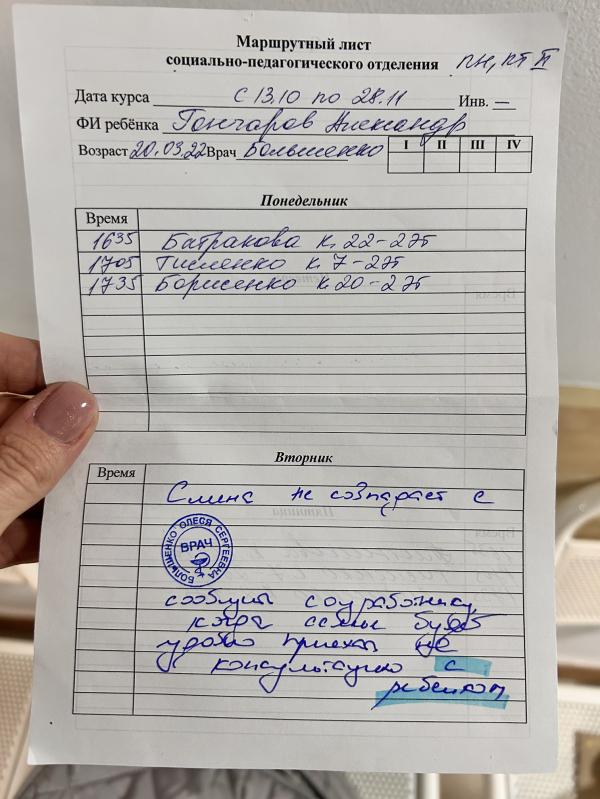 Маршрутный лист
социально-педагогического отделения пн, пт II
Дата курса с 13.10 по 28.11 Инв. —
ФИ ребёнка Гончаров Александр
Возраст 20.03.22 Врач Большенко I II III IV
Понедельник
Время
1635 Батракова к. 22-2 эт
1705 Тисленко к. 7-2эт
1735 Борисенко к. 20-2 эт
Вторник
Время
Смена не совпадает с
ВРАЧ
ОЛЕСЯ СЕРГЕЕВНА
сообщить соц работнику,
когда семье будет
удобно приехать на
консультацию с
ребенком